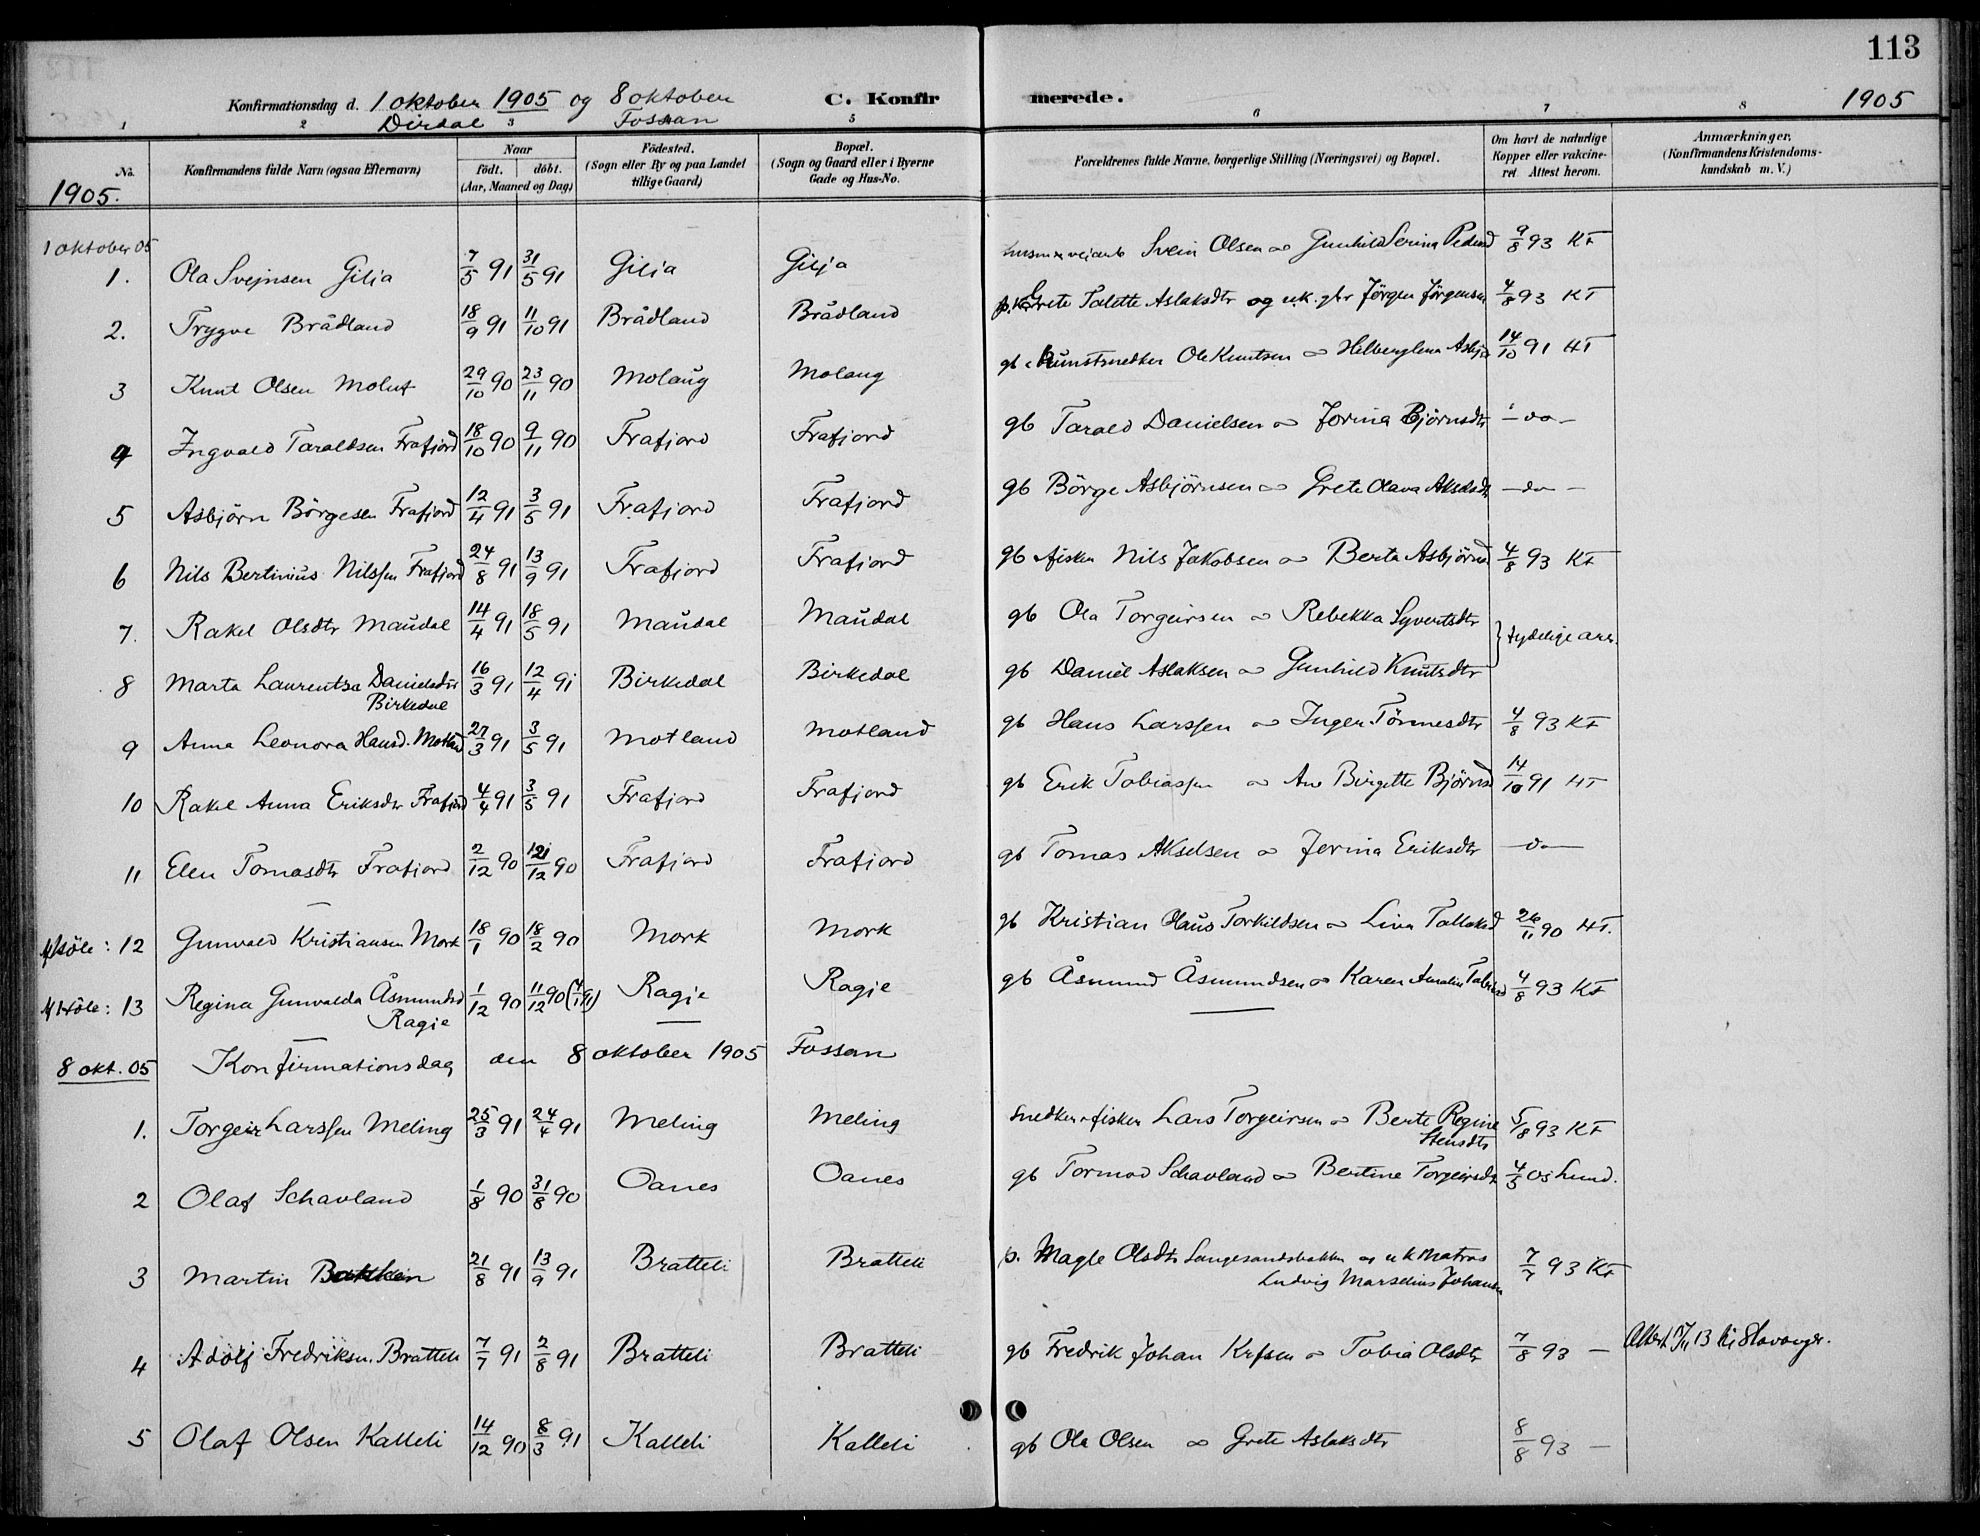 113
Konfirmationsdag d. 1 oktober 1905 og 8 oktober C. Konfirmerede. 1905
Dirdal Fossan
1 2 3 5 6 7 8
No. Konfirmandens fulde Navn (ogsaa Efternavn) Naar födt. döbt. (Aar, Maaned og Dag) Födested. (Sogn eller By og paa Landet tillige Gaard) Bopæl. (Sogn og Gaard eller i Byerne Gade og Hus-No. Forældrenes fulde Navne, borgerlige Stilling (Næringsvei) og Bopæl. Om havt de naturlige Kopper eller vakcineret Attest herom. Anmærkninger. (Konfirmandens Kristendomskundskab m. V.)
1905.
1 oktober 05
1. Ola Svejnsen Gilja 7/5 91 31/5 91 Gilja Gilja Svein Olsen ∞ Gunhild Serina Pedersd 9/8 93 KT
2. Trygve Brådland 18/9 91 11/10 91 Brådland Brådland p.k. Grete Talette Aslaksdtr og u.k. gbr Jörgen Jörgensen 4/8 93 KT
3 Knut Olsen Molut 29/10 90 23/11 90 Molaug Molaug gb. kunstsnedker Ole Knutsen ∞ 14/10 91 HT
4 Ingvald Taraldsen Frafjord 18/10 90 9/11 90 Frafjord Frafjord gb Tarald Danielsen ∞ Jorina Björnsdtr - do -
5 Asbjörn Börgesen Frafjord 12/4 91 3/5 91 Frafjord Frafjord gb Börge Asbjörnsen ∞ Grete Olava Akselsdt - do -
6 Nils Bertinius Nilssen Frafjord 24/8 91 13/9 91 Frafjord Frafjord gb & fisker Nils Jakobsen ∞ Berta Asbjörnsd 4/8 93 KT
7. Rakel Olsdtr Maudal 14/4 91 18/5 91 Maudal Maudal gb Ola Torgeirsen ∞ Rebekka Syvertsdtr } tydelige arr.
8 Marta Laurentsa Danielsdtr 16/3 91 12/4 91 Birkedal Birkedal gb Daniel Aslaksen ∞ Gunhild Knutsdtr
Birkedal
9 Anna Leonora Hansd. Motland 27/3 91 3/5 91 Motland Motland gb Hans Larssen ∞ Inger Tönnesdtr 4/8 93 KT
10 Rakel Anna Eriksdtr Frafjord 4/4 91 3/5 91 Frafjord Frafjord gb Erik Tobiassen ∞ Ane Birgitte Björnsd 14/10 91 HT
11 Elen Tomasdtr Frafjord 2/12 90 12/12 90 Frafjord Frafjord gb Tomas Akselsen ∞ Jorina Eriksdtr - do -
Af Höle: 12 Gunvald Kristiansen Mork 18/1 90 18/2 90 Mork Mork gb Kristian Hans Torkildsen ∞ Lina Tollaksd 26/11 90 HT.
Af Höle: 13 Regina Gunvalda Åsmundsd 1/12 90 11/12 90 (4/1 91) Ragje Ragje gb Åsmund Åsmundsen ∞ Karen Amalie Tobiasd 4/8 93 KT
Ragje
8 okt. 05 Konfirmationsdag den 8 oktober 1905 Fossan
1. Torgeir Larssen Meling 25/3 91 24/4 91 Meling Meling Snedker & fisker Lars Torgeirsen ∞ Berte Regine 5/8 93 KT
Stensdtr
2 Olaf Schavland 1/8 90 31/8 90 Oanes Oanes gb Tormod Schavland ∞ Bertine Torgeirsdtr 4/5 05 Lund.
3 Martin Bakken 21/8 91 13/9 91 Bratteli Bratteli p. Magle Olsdtr Langesandsbakken og u k Matros 7/7 93 KT
Ludvig Marselius Johansen
4 Adolf Fredriksen. Bratteli 7/7 91 2/8 91 Bratteli Bratteli gb Fredrik Johan Krfsen ∞ Tobia Olsdtr 7/8 93 - Attest 17/11 13 til Stavanger.
5 Olaf Olsen Kalleli 14/12 90 8/3 91 Kalleli Kalleli gb Ola Olsen ∞ Grete Aslaksdtr 8/8 93 -